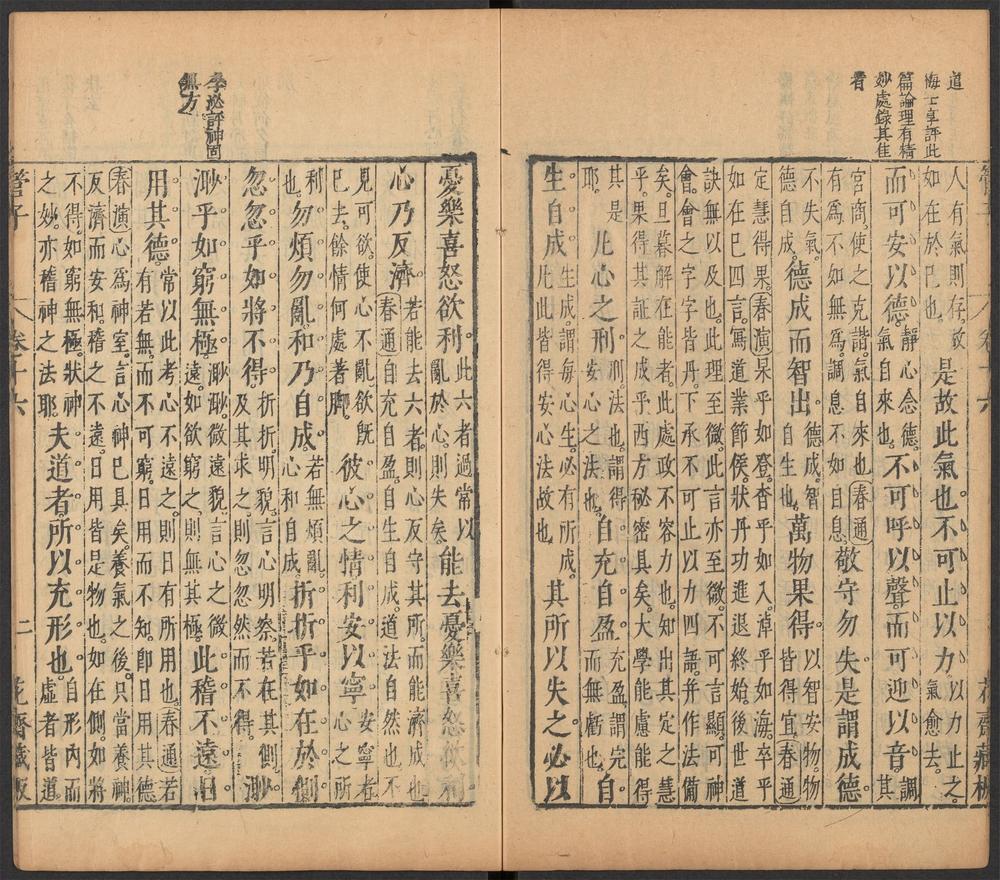 道
梅士享評此
篇論理有精
妙處錄其佳
者
人有氣則存。故
如在於已也。
是故此氣也。不可止以力。
以力止之。
氣愈去。
而可安以德。
靜心念德。
氣自來也。
不可呼以聲。而可迎以音
調其
宮商。使之克諧。氣自來也春通
有爲不如無爲。調息不如自息。
敬守勿失。是謂成德
不失氣。
德自成。
德成而智出
德成。智
自生也。
萬物果得。
以智安物物
皆得宜。春通
定慧得果。春演杲乎如登。杳乎如入。淖乎如海。卒乎
如在已四言。寫道業節侯。狀丹功進退終始。後世道
訣無以及也。此理至微。此言亦至微。不可言顯。可神
會。會之字字皆丹。下承不可止以力四語。并作法備
矣。旦暮解在能者。此處政不容力也。知出其定之慧
乎。果得其証之成乎。西方秘密具矣。大學能慮能得
其是
耶。
凡心之刑。
刑。法也。謂得
安心之法也。
自充自盈。
充盈。謂完
而無虧也。
自
生自成
生成。謂每心生。必有所成。
凡此皆得安心法故也。
其所以失之。必以
憂樂喜怒欲利。
此六者過常。以
亂於心。則失矣
能去憂樂喜怒欲利
心乃反濟
若能去六者。則心反守其所。而能濟成也
春通自充自盈。自生自成。道法自然也。不
見可欲。使心不亂。欲旣
已去。餘情何處著脚。
彼心之情。利安以寧
安寧者
心之所
利
也。
勿煩勿亂。和乃自成。
若無煩亂。
心和自成。
折折乎如在於側
忽忽乎如將不得。
折折。明貌。言心明察。若在其側。
及其求之。則忽忽然而不得。
渺
渺乎如窮無極。
渺渺。微貌。言心之微
遠。如欲窮之。則無其極。
此稽不遠。日
用其德。
常以此考心不遠之。則日有所用也。春通若
有若無。而不可窮。日用而不知。卽日用其德
春演心爲神室。言心神已具矣。養氣之後。只當養神。
反濟而安和。稽之不遠。日用皆是物也。如在側。如將
不得。如窮無極。狀神
之妙。亦稽神之法耶
夫道者。所以充形也。
自形內而
虛者皆道。
李泌評神固
無方
管子
卷十六
二
花齋藏板